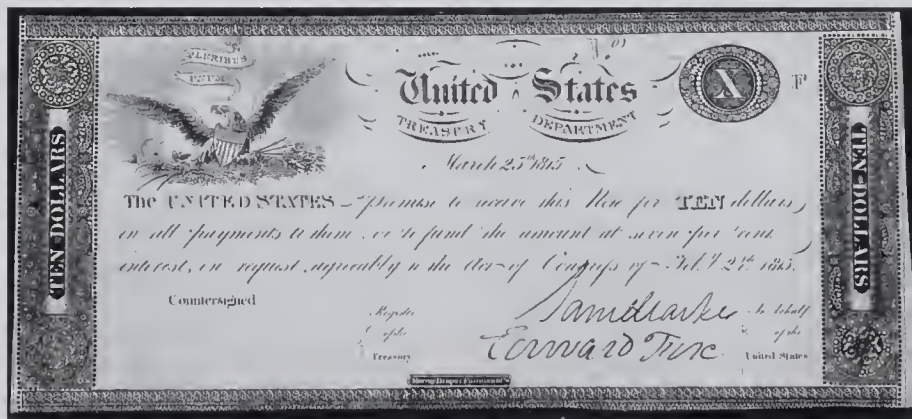 E PLURIBUS
UNUM
No of
United States
X
F
TREASURY DEPARTMENT
March 25th 1815
TEN DOLLARS
TEN-DOLLARS
The UNITED STATES Promise to receive this Note for TEN dollars
in all payments to them or to fund the amount at seven per cent
interest, on request, agreeably to the Act of Congress of Feb.y 24th 1815.
Countersigned
Register
of the
Treasury
Saml Clarke
Edward Fox
In behalf
of the
United States
Murray Draper Fairman & Co